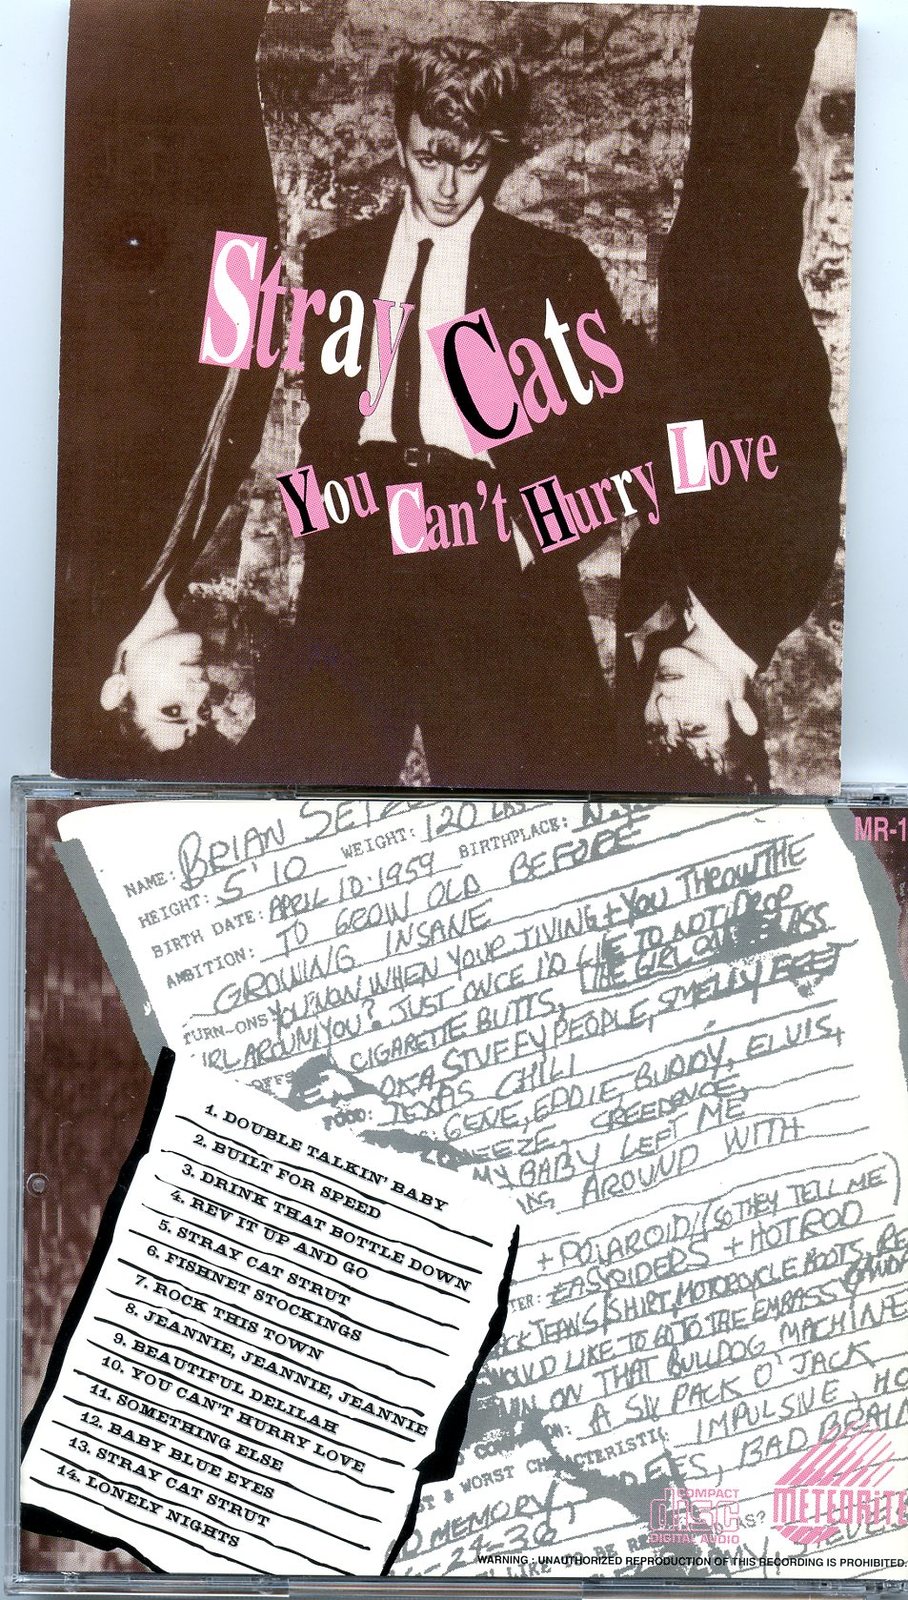 Stray Cats
You Can't Hurry Love
MR-1
NAME: BRIAN
HEIGHT: 5'10 WEIGHT: 120 LBS
BIRTH DATE: APRIL 10·1959 BIRTHPLACE:
AMBITION: TO GROW OLD BEFORE
GROWING INSANE
TURN-ONS YOU NOW WHEN YOUR JIVING + YOU THROW THE
RL AROUN YOU? JUST ONCE I'D LIE TO NOT DROP
CIGARETTE BUTTS, THE GIRL ON ASS
OKA, STUFFY PEOPLE, SMELLY FEET
FOOD: TEXAS CHILI
GENE, EDDIE BUDDY, ELVIS,
CREEDENCE,
MY BABY LEFT ME
AROUND WITH
+ POLAROID! (SO THEY TELL ME)
TER: EASY RIDERS + HOTROD
JEANS, SHIRT, MOTORCYCLE BOOTS, RE
OULD LIKE TO GO TO THE EMBASSY
ON THAT BULLDOG MACHINE
A SIX PACK O' JACK
ST & WORST CHARACTERISTIC IMPULSIVE, HO
BAD BRAIN
D MEMORY,
-24-36
1. DOUBLE TALKIN' BABY
2. BUILT FOR SPEED
3. DRINK THAT BOTTLE DOWN
4. REV IT UP AND GO
5. STRAY CAT STRUT
6. FISHNET STOCKINGS
7. ROCK THIS TOWN
8. JEANNIE, JEANNIE, JEANNIE
9. BEAUTIFUL DELILAH
10. YOU CAN'T HURRY LOVE
11. SOMETHING ELSE
12. BABY BLUE EYES
13. STRAY CAT STRUT
14. LONELY NIGHTS
COMPACT
disc
DIGITAL AUDIO
METEORITE
WARNING : UNAUTHORIZED REPRODUCTION OF THIS RECORDING IS PROHIBITED.